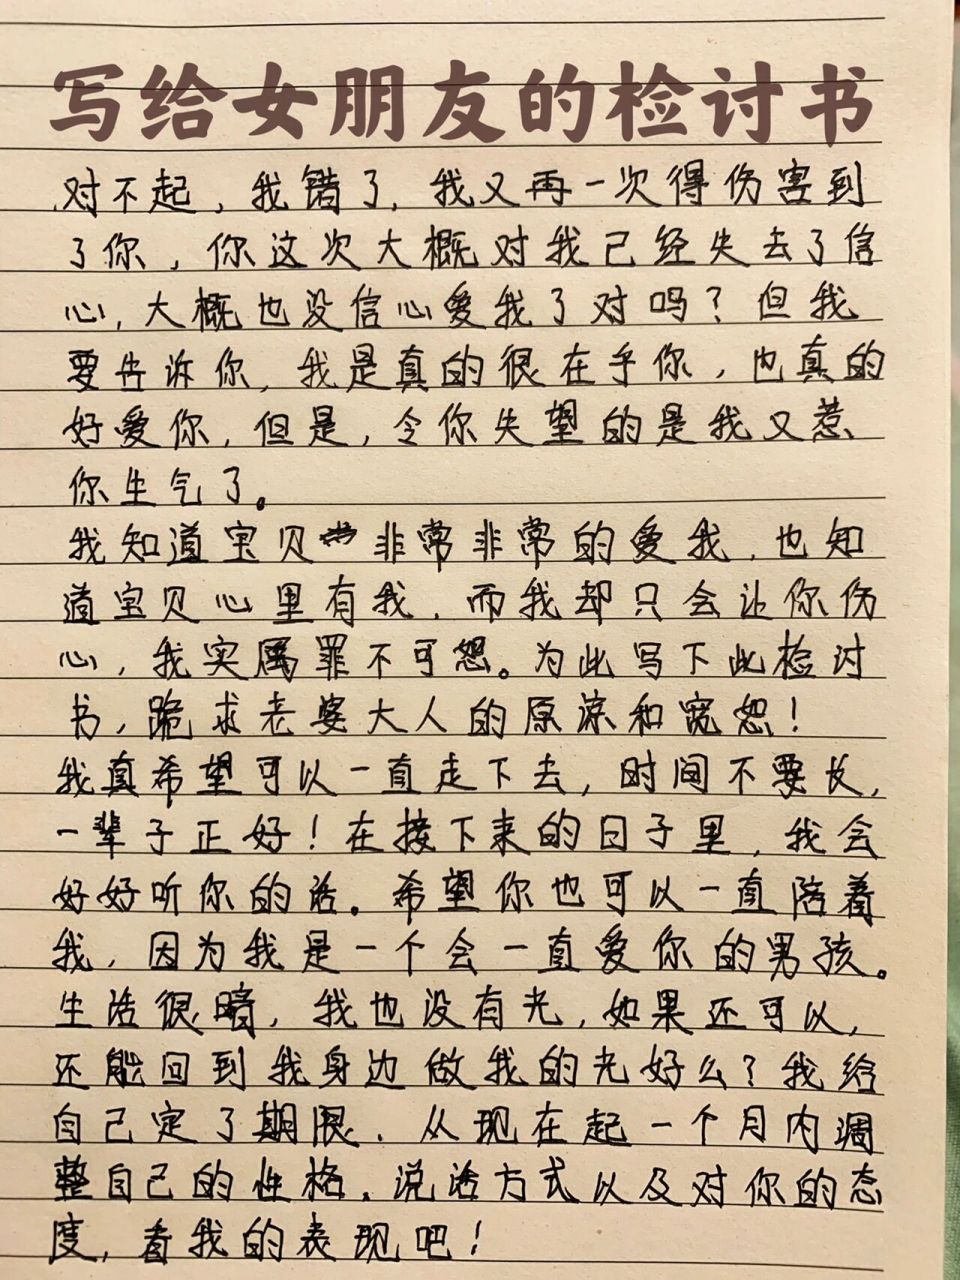 写给女朋友的检讨书
对不起，我错了，我又再一次得伤害到
了你，你这次大概对我己经失去了信
心，大概也没信心爱我了对吗？但我
要告诉你，我是真的很在乎你，也真的
好爱你，但是，令你失望的是我又惹
你生气了。
我知道宝贝非常非常的爱我，也知
道宝贝心里有我，而我却只会让你伤
心，我实属罪不可恕。为此写下此检讨
书，跪求老婆大人的原谅和宽恕！
我真希望可以一直走下去，时间不要长，
一辈子正好！在接下来的日子里，我会
好好听你的话。希望你也可以一直陪着
我，因为我是一个会一直爱你的男孩。
生活很暗，我也没有光，如果还可以，
还能回到我身边做我的光好么？我给
自己定了期限，从现在起一个月内调
整自己的性格，说话方式以及对你的态
度，看我的表现吧！